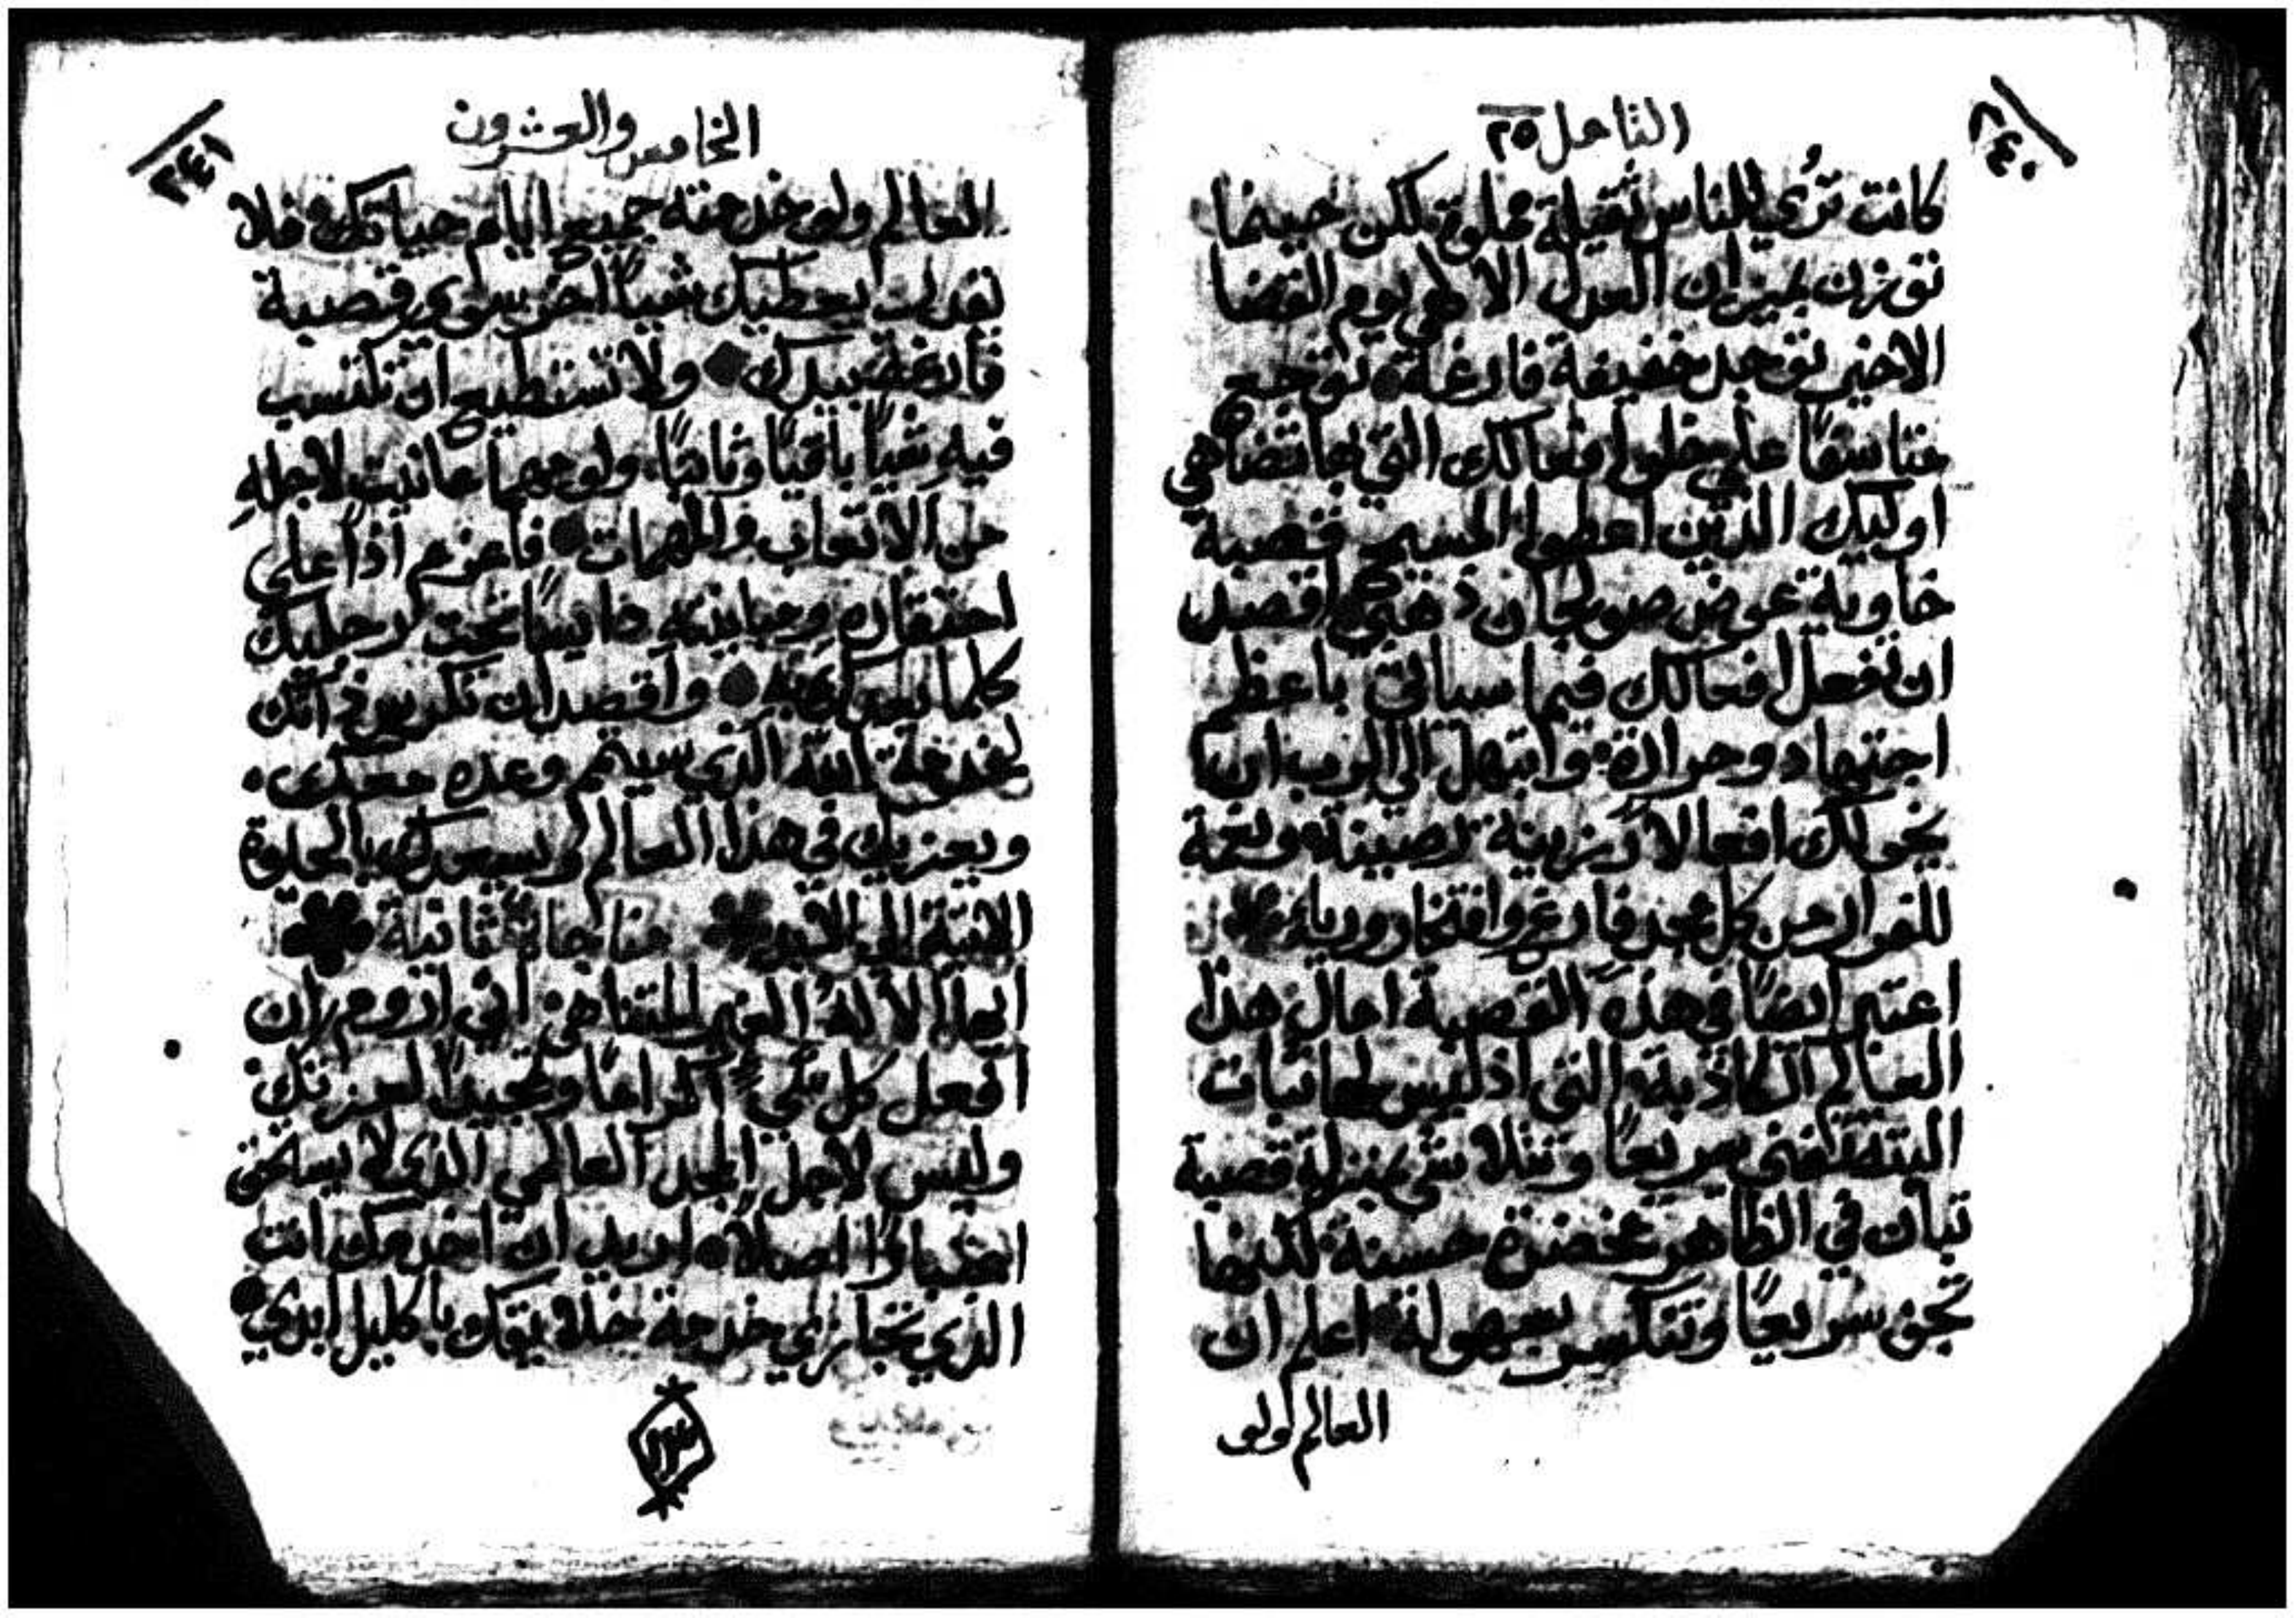 ٢٤٠
التامل ٢٥
كانت تُري للناس ثقيلة مملوة لكن حينما
توزن بميزان العدل الالهي يوم القضا
الاخير توجد خفيفة فارغة توجع
متاسفًا علي خلو افعالك التي بها تضاهي
اوليك الذين اعطوا المسيح قصبة
خاوية عوض صولجان ذهبي اقصد
ان تفعل افعالك فيما سياتي باعظم
اجتهاد وحرارة وابتهل الي الرب ان
يخولك افعالاً رزينة رصينة
كل مجد فارغ وافتخار ورياء
اعتبر ايضًا في هذه القصبة امال هذا
العالم الكاذبة التي اذ ليس لها ثبات
البتة تفني سريعًا وتتلاشي بمنزلة قصبة
تبان في الظاهر مخضرة حسنة لكنها
تجف سريعًا وتنكسر بسهولة اعلم ان
العالم ولو
٢٤١
الخامس والعشرون
العالم ولو خدمته جميع ايام حياتك فلا
يقدر ان يعطيك شياً اخر سوي قصبة
فارغة بيدك ولا تستطيع ان تكتسب
فيه شياً باقيًا وثابتًا ولو مهما عانيت لاجلهِ
من الاتعاب والمهمات فاعزم اذاً علي
احتقاره ومباينته دايسًا تحت رجليك
كلما يعدك به واقصد ان تكرس ذاتك
لخدمة الله الذي سيتم وعده معك
ويعزيك في هذا العالم ويسعدك بالحلوة
الاتية الي الابد مناجاة ثانية
ايها الالهُ الغير المتناهي اني اروم ان
افعل كل شي اكرامًا وتمجيدًا لعزتك
وليس لاجل المجد العالمي الذي لا يستحق
اعتبارًا اصلاً اريد ان اخدمك انت
الذي تجازي خدمة خلايقك باكليل ابدي